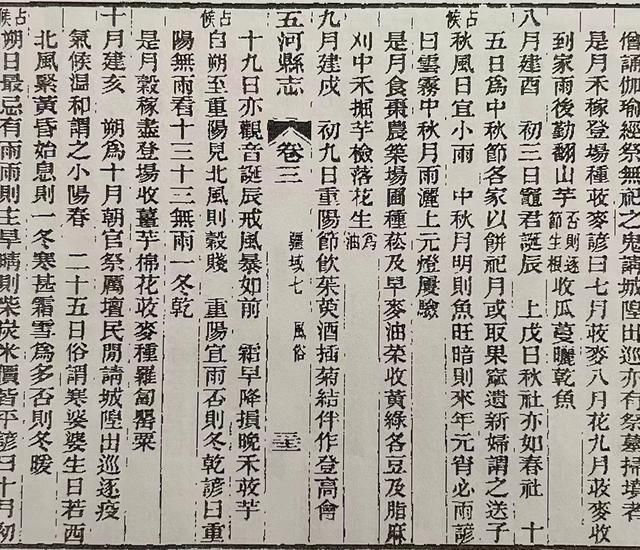 僧誦伽瑜經祭無祀之鬼請城隍出巡亦有祭墓掃墳者
是月禾稼登場種莜麥諺曰七月莜麥八月花九月莜麥收
到家雨後勤翻山芋否則逐節生根收瓜蔓曬乾魚
八月建酉 初三日竈君誕辰 上戊日秋社亦如春社 十
五日爲中秋節各家以餅祀月或取果窳遺新婦謂之送子
占候 秋風日宜小雨 中秋月明則魚旺暗則來年元宵必雨諺
曰雲霧中秋月雨灑上元燈屢驗
是月食棗農築場圃種菘及早麥油菜收黃綠各豆及脂麻
刈中禾掘芋檢落花生爲油
九月建戌 初九日重陽節飲茱萸酒插菊結伴作登高會
五河縣志 卷三 疆域七 風俗
十九日亦觀音誕辰戒風暴如前 霜早降損晚禾莜芋
占候 自朔至重陽見北風則穀賤 重陽宜雨否則冬乾諺曰重
陽無雨看十三十三無雨一冬乾
是月穀稼盡登場收薑芋棉花莜麥種羅蔔罌粟
十月建亥 朔爲十月朝官祭厲壇民間請城隍出巡逐疫
氣候溫和謂之小陽春 二十五日俗謂寒婆婆生日若西
北風緊黃昏始息則一冬寒甚霜雪爲多否則冬暖
占候 朔日最忌有雨雨則主旱晴則柴炭米價皆平諺曰十月初